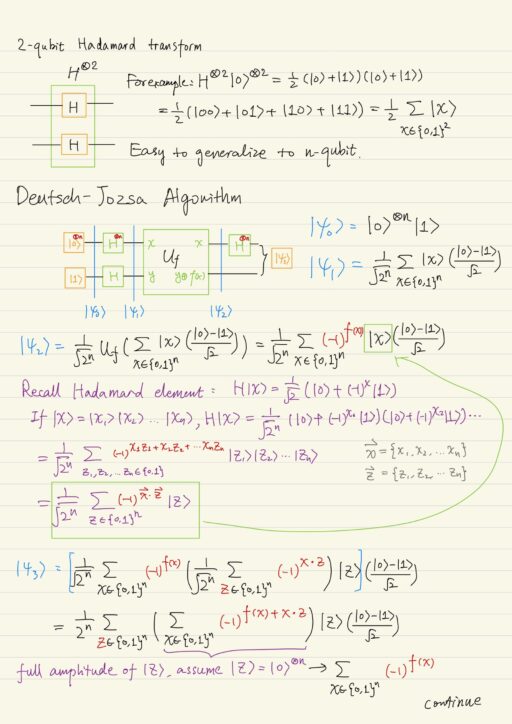 2-qubit Hadamard transform
H^{⊗2}
H
H
For example: H^{⊗2}|0⟩^{⊗2} = 1/2 (|0⟩+|1⟩)(|0⟩+|1⟩)
= 1/2 (|00⟩+|01⟩+|10⟩+|11⟩) = 1/2 ∑_{x∈{0,1}^2} |x⟩
Easy to generalize to n-qubit.
Deutsch-Jozsa Algorithm
|0⟩^{⊗n} H^{⊗n} x x H^{⊗n}
U_f |ψ_3⟩
|1⟩ H y y⊕f(x)
|ψ_0⟩ |ψ_1⟩ |ψ_2⟩
|ψ_0⟩ = |0⟩^{⊗n}|1⟩
|ψ_1⟩ = 1/√2^n ∑_{x∈{0,1}^n} |x⟩ ((|0⟩-|1⟩)/√2)
|ψ_2⟩ = 1/√2^n U_f (∑_{x∈{0,1}^n} |x⟩ ((|0⟩-|1⟩)/√2)) = 1/√2^n ∑_{x∈{0,1}^n} (-1)^{f(x)} |x⟩ ((|0⟩-|1⟩)/√2)
Recall Hadamard element: H|x⟩ = 1/√2 (|0⟩+(-1)^x|1⟩)
If |x⟩ = |x_1⟩|x_2⟩ ... |x_n⟩, H|x⟩ = 1/√2^n (|0⟩+(-1)^{x_1}|1⟩)(|0⟩+(-1)^{x_2}|1⟩)...
= 1/√2^n ∑_{z_1,z_2,...z_n∈{0,1}} (-1)^{x_1z_1+x_2z_2+...x_nz_n} |z_1⟩|z_2⟩...|z_n⟩
x⃗ = {x_1, x_2, ... x_n}
z⃗ = {z_1, z_2, ... z_n}
= 1/√2^n ∑_{z∈{0,1}^n} (-1)^{x⃗·z⃗} |z⟩
|ψ_3⟩ = [1/√2^n ∑_{x∈{0,1}^n} (-1)^{f(x)} (1/√2^n ∑_{z∈{0,1}^n} (-1)^{x·z}) |z⟩] ((|0⟩-|1⟩)/√2)
= 1/2^n ∑_{z∈{0,1}^n} (∑_{x∈{0,1}^n} (-1)^{f(x)+x·z}) |z⟩ ((|0⟩-|1⟩)/√2)
full amplitude of |z⟩, assume |z⟩=|0⟩^{⊗n} → ∑_{x∈{0,1}^n} (-1)^{f(x)}
continue